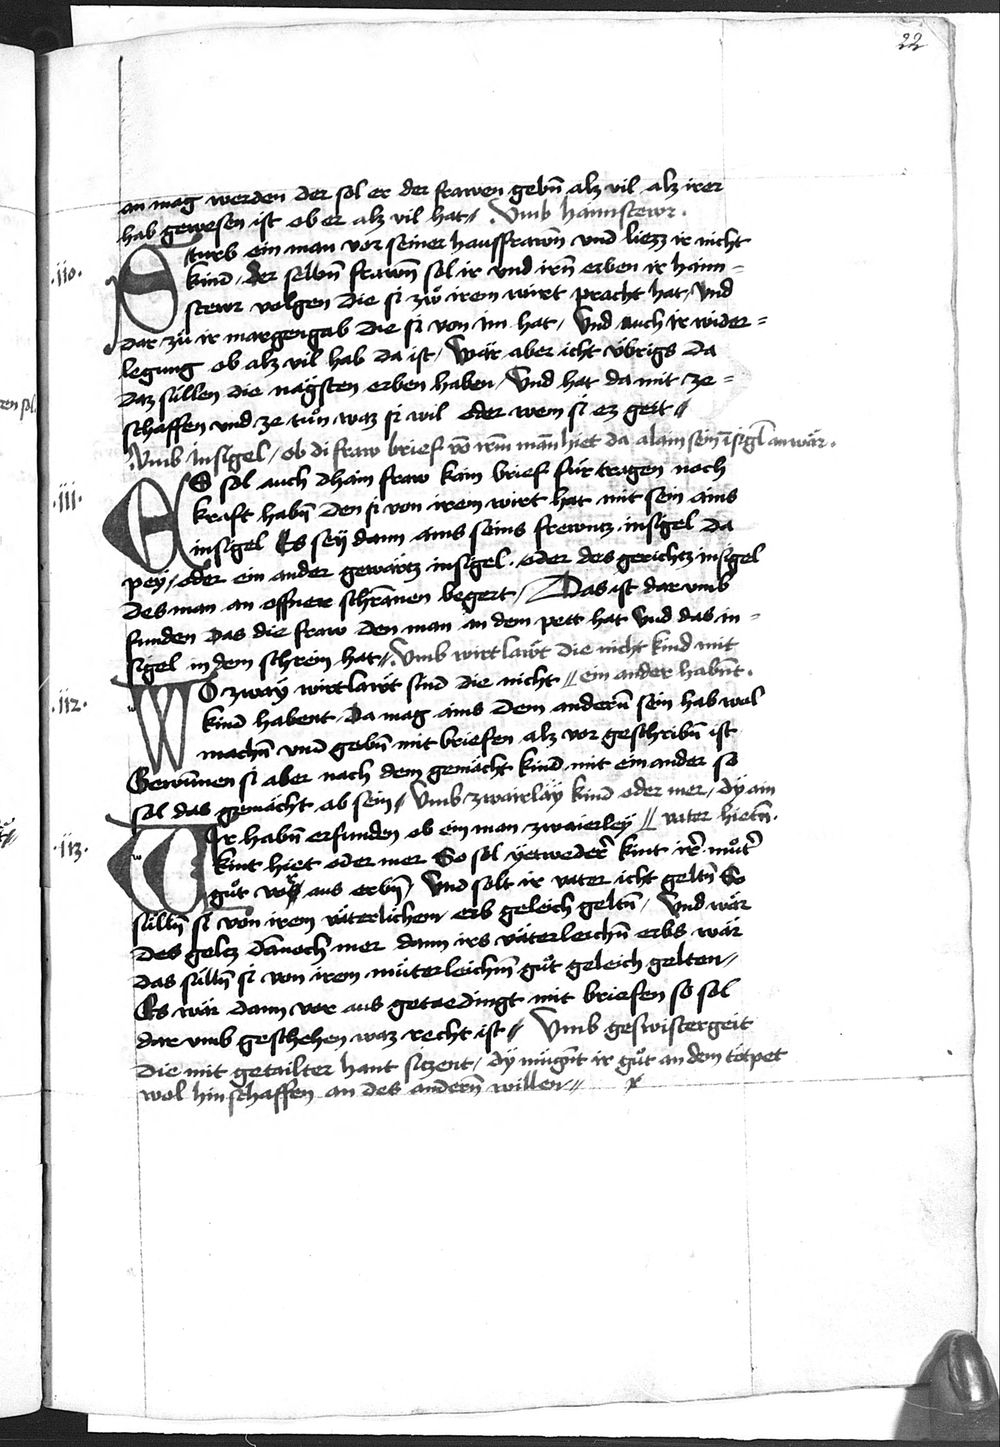 22
an mag werden der sol er der frawen gebn̄ alz vil alz irer
hab gewesen ist ob er alz vil hat // Vmb haimstewr.
.110. Sturb ein man vor seiner hausfrawn̄ vnd liezz ir nicht
kind, der selbn̄ frawn̄ sol ir vnd irn̄ erben ir haim-
stewr volgen die si zwͦ irem wirt pracht hat / Vnd
dar zuͦ ir margengab die si von im hat / Vnd auch ir wider-
legung ob alz vil hab da ist / Wär aber icht v̈brigs da
daz süllen die nägsten erben haben / Vnd hat da mit ze-
schaffen vnd ze tuͦn waz si wil oder wem si ez geit //
Vmb Insigel / ob di fraw brief vō irm man̄ hiet da alain sein īsigl̄ an wär.
.111. ES sol auch dhain fraw kain brief für tragen noch
kraft habn̄ den si von irem wirt hat mit sein ains
insigel Es seÿ dann ains seins frewntz insigel da
peÿ / oder ein ander gewärtz insigel. oder des gerichtz insigel
des man an offner schrannen begert / Das ist dar vmb
funden das die fraw den man an dem pett hat vnd das in-
sigel in dem schrein hat // Vmb wirtläwt die nicht kind mit
.112. WO zwaÿ wirtläwt sind die nicht // ein ander habnt̄.
kind habent. Da mag ains dem andern̄ sein hab wol
machn̄ vnd gebn̄ mit briefen alz vor geschribn̄ ist
Gewin̄nen si aber nach dem gemächt kind mit ein ander so
sol das gemächt ab sein // Vmb zwairläy kind oder mer / dÿ ain
.113. WIr habn̄ erfunden ob ein man zwaierleÿ // vater hietn̄.
kint hiet oder mer So sol ÿetweder̄ kint ir̄ muͦt̄
guͦt vor aus erbn̄ / Vnd solt ir vater icht geltn̄ So
sülln̄ si von irem väterlichem erb geleich geltn̄ / Vnd wär
des geltz dānoch mer dann irs väterleichn̄ erbs wär
das sülln̄ si von irem müterleichm̄ guͦt geleich gelten //
Es wär dann vor aus getaedingt mit briefen so sol
dar vmb geschehen waz recht ist // Vmb geswistergeit
die mit getailter hant sitzent / dÿ mügn̄t ir guͦt an dem totpet
wol hin schaffen an des andern̄ willen //